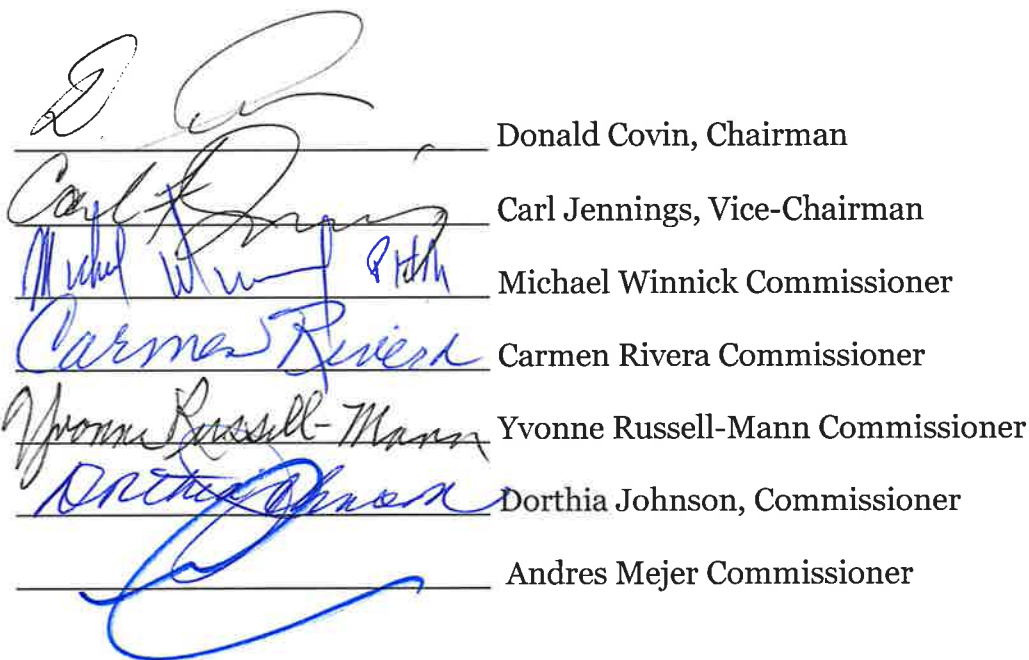 Donald Covin, Chairman
Carl Jennings, Vice-Chairman
Michael Winnick Commissioner
Carmen Rivera Carmen Rivera Commissioner
Yvonne Russell-Mann Yvonne Russell-Mann Commissioner
Dorthia Johnson Dorthia Johnson, Commissioner
Andres Mejer Commissioner